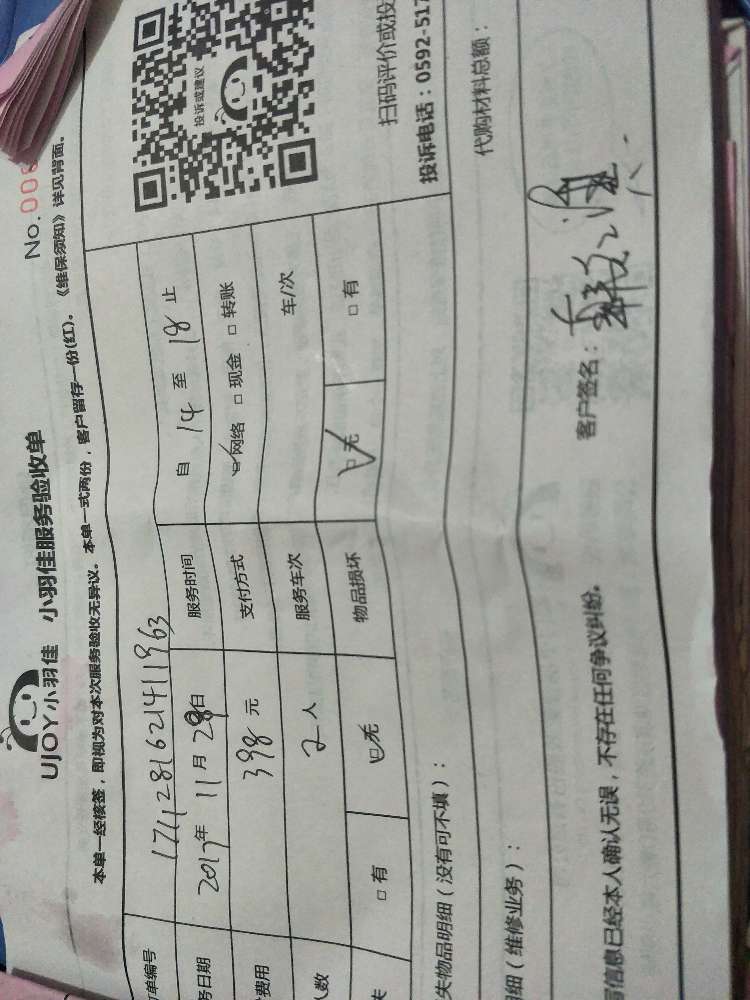 UJOY小羽佳 小羽佳服务验收单
No.006
本单一经核签，即视为对本次服务验收无异议。本单一式两份，客户留存一份(红)。《维保须知》详见背面。
单编号 1711281621411963
务日期 2017年 11月 28日 服务时间 自 14 至 18 止
费用 398 元 支付方式 ☑网络 □现金 □转账
人数 2 人 服务车次 车/次
失 □有 ☑无 物品损坏 ☑无 □有
投诉或建议
扫码评价或投
投诉电话：0592-517
失物品明细（没有可不填）：
细（维修业务）： 代购材料总额：
信息已经本人确认无误，不存在任何争议纠纷。 客户签名：